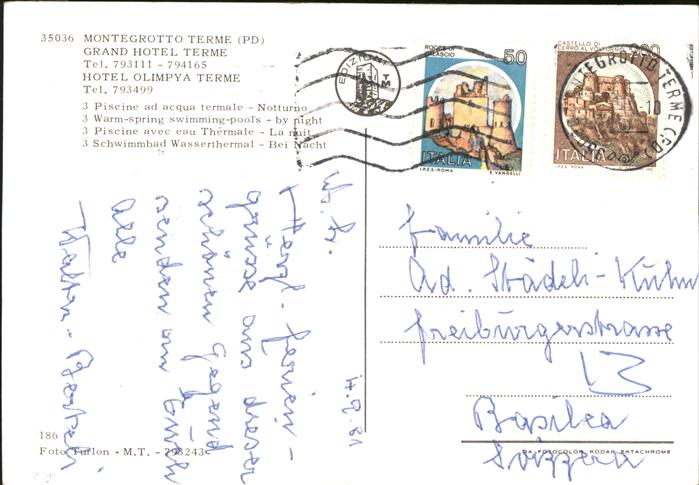 35036 MONTEGROTTO TERME (PD)
GRAND HOTEL TERME
Tel. 793111 - 794165
HOTEL OLIMPYA TERME
Tel. 793499
3 Piscine ad acqua termale - Notturno
3 Warm-spring swimming-pools - by night
3 Piscine avec eau Thérmale - La nuit
3 Schwimmbad Wasserthermal - Bei Nacht
EDIZIONI
TM
ROCCA DI
CALASCIO
50
ITALIA
I.P.Z.S.-ROMA E. VANGELLI
CASTELLO DI
CERRO AL VOLTURNO 200
ITALIA
I.P.Z.S. ROMA
MONTEGROTTO TERME (PD)
10
4.9.81
Herzl. Ferien-
grüsse aus dieser
schönen Gegend
senden an Euch
Alle
Familie
Ad. Städeli-Kuhn
Freiburgerstrasse
Basilea
Svizzera
186
Foto Turlon - M.T. - 793243
DA FOTOCOLOR KODAK EKTACHROME